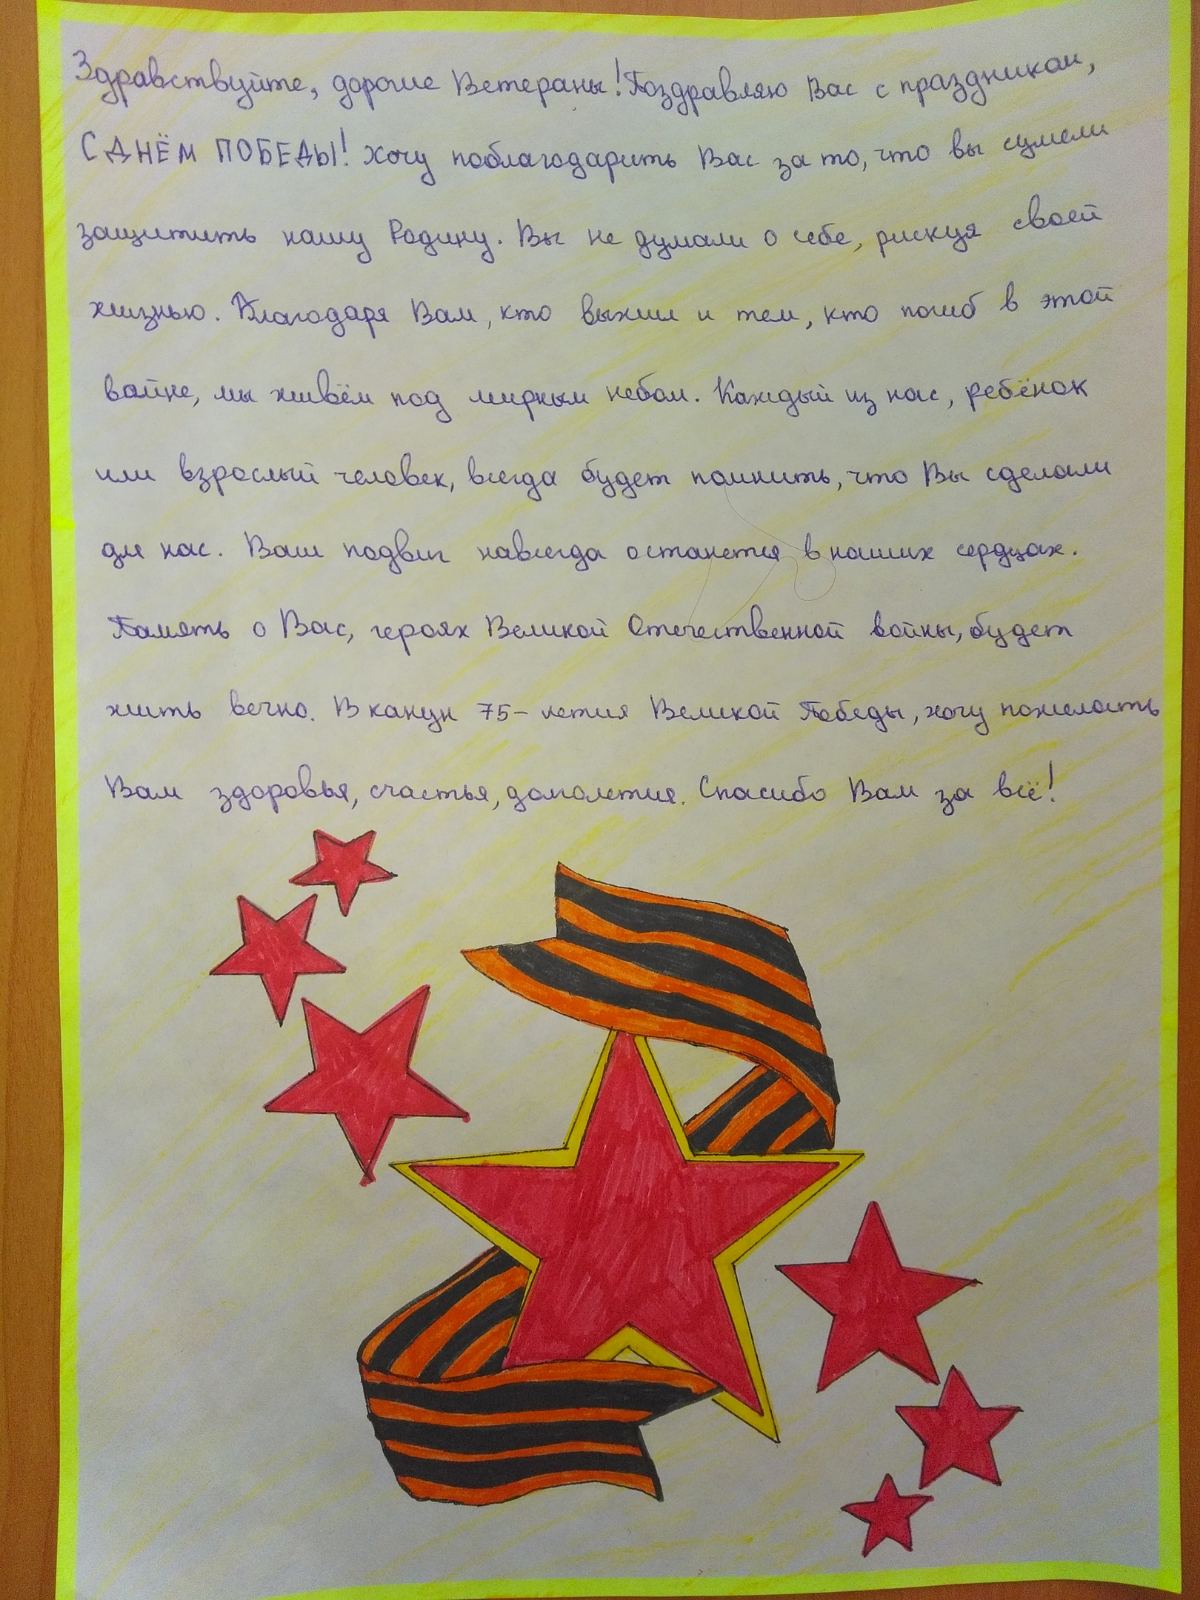 Здравствуйте, дорогие Ветераны! Поздравляю Вас с праздником,
С ДНЁМ ПОБЕДЫ! Хочу поблагодарить Вас за то, что вы сумели
защитить нашу Родину. Вы не думали о себе, рискуя своей
жизнью. Благодаря Вам, кто выжил и тем, кто погиб в этой
войне, мы живём под мирным небом. Каждый из нас, ребёнок
или взрослый человек, всегда будет помнить, что Вы сделали
для нас. Ваш подвиг навсегда останется в наших сердцах.
Память о Вас, героях Великой Отечественной войны, будет
жить вечно. В канун 75-летия Великой Победы, хочу пожелать
Вам здоровья, счастья, долголетия. Спасибо Вам за всё!